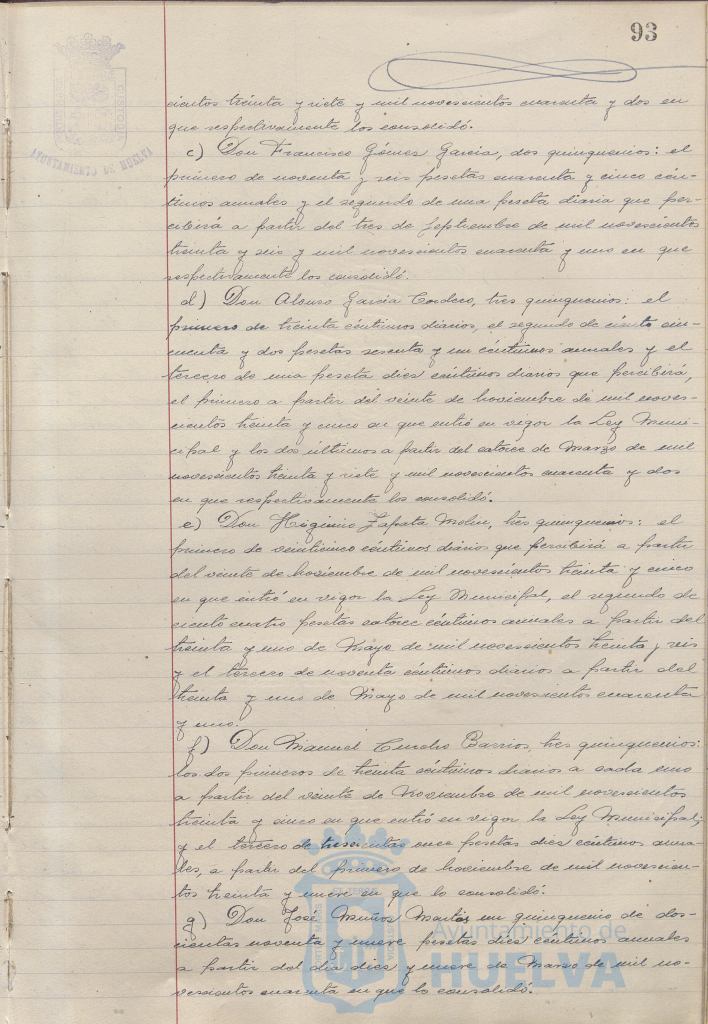 93
AYUNTAMIENTO DE HUELVA
cientos treinta y siete y mil novescientos cuarenta y dos en
que respectivamente los consolidó.
c) Don Francisco Gómez García, dos quinquenios: el
primero de noventa y seis pesetas cuarenta y cinco cén-
timos anuales y el segundo de una peseta diaria que per-
cibirá a partir del tres de Septiembre de mil novescientos
treinta y seis y mil novescientos cuarenta y uno en que
respectivamente los consolidó.
d) Don Alonso García Cordero, tres quinquenios: el
primero de treinta céntimos diarios, el segundo de ciento cin-
cuenta y dos pesetas sesenta y un céntimos anuales y el
tercero de una peseta diez céntimos diarios que percibirá,
el primero a partir del veinte de Noviembre de mil noves-
cientos treinta y cinco en que entró en vigor la Ley Muni-
cipal y los dos últimos a partir del catorce de Marzo de mil
novescientos treinta y siete y mil novescientos cuarenta y dos
en que respectivamente los consolidó.
e) Don Higinio Zapata Molin, tres quinquenios: el
primero de veinticinco céntimos diarios que percibirá a partir
del veinte de Noviembre de mil novescientos treinta y cinco
en que entró en vigor la Ley Municipal, el segundo de
ciento cuatro pesetas catorce céntimos anuales a partir del
treinta y uno de Mayo de mil novescientos treinta y seis
y el tercero de noventa céntimos diarios a partir del
treinta y uno de Mayo de mil novescientos cuarenta
y uno.
f) Don Manuel Barrios, tres quinquenios:
los dos primeros de treinta céntimos diarios a cada uno
a partir del veinte de Noviembre de mil novescientos
treinta y cinco en que entró en vigor la Ley Municipal;
y el tercero de trescientas once pesetas diez céntimos anua-
les, a partir del primero de Noviembre de mil novescien-
tos treinta y nueve en que lo consolidó.
g) Don José Muñoz Martín un quinquenio de dos-
cientas noventa y nueve pesetas diez céntimos anuales
a partir del día diez y nueve de Marzo de mil no-
vescientos cuarenta en que lo consolidó.
Ayuntamiento de
HUELVA